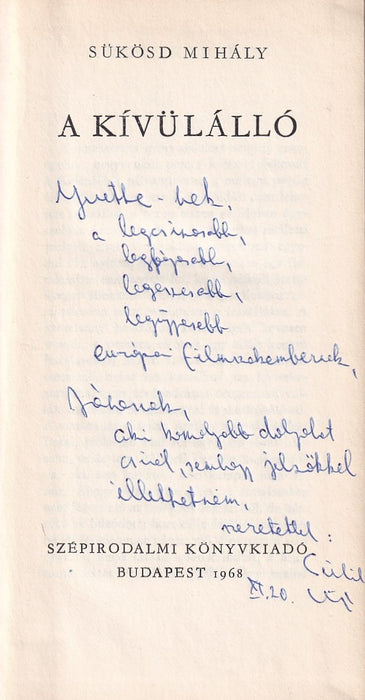 SÜKÖSD MIHÁLY
A KÍVÜLÁLLÓ
Yvette-nek,
a legcsinosabb,
legeszesebb,
legügyesebb
európai filmszakembernek,
Jánosnak,
aki komolyabb dolgokat
csinál, semhogy jelzőkkel
illethetném,
szeretettel:
SZÉPIRODALMI KÖNYVKIADÓ
BUDAPEST 1968
XI. 20.